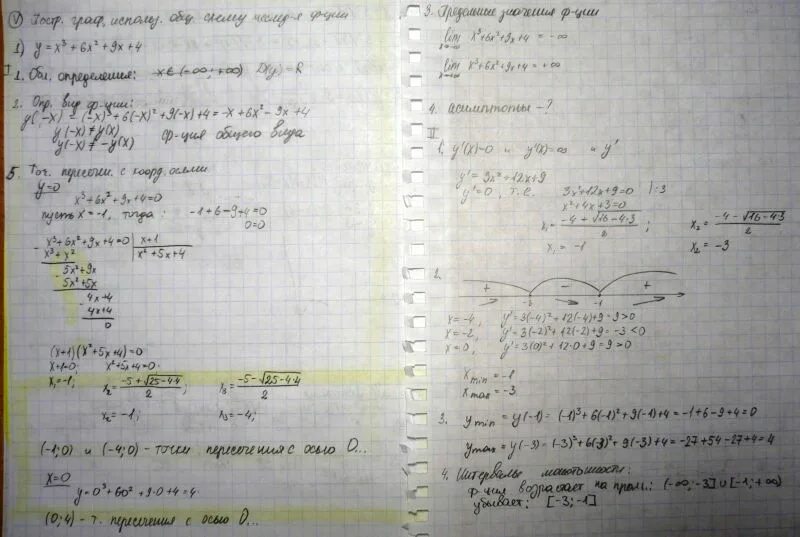 V Постр. граф, использ. общ. схему исслед-я ф-ции
1) y = x³ + 6x² + 9x + 4
I
1. Обл. определения: x∈(-∞; +∞) D(y) = R
2. Опр. вид ф-ции:
y(-x) = (-x)³ + 6(-x)² + 9(-x) + 4 = -x + 6x² - 9x + 4
y(-x) ≠ y(x)
y(-x) ≠ -y(x) ф-ция общего вида
5. Точ. пересечен. с коорд. осями
y=0
x³ + 6x² + 9x + 4 = 0
пусть x = -1, тогда: -1 + 6 - 9 + 4 = 0
0 = 0
- x³ + 6x² + 9x + 4 = 0 | x + 1
x³ + x² | x² + 5x + 4
- 5x² + 9x
5x² + 5x
- 4x + 4
4x + 4
0
(x+1)(x² + 5x + 4) = 0
x + 1 = 0; x² + 5x + 4 = 0
x₁ = -1; x₂ = (-5 + √(25 - 4·4))/2; x₃ = (-5 - √(25 - 4·4))/2
x₂ = -1; x₃ = -4;
(-1; 0) и (-4; 0) - точки пересечения с осью O...
x=0
y = 0³ + 6·0² + 9·0 + 4 = 4
(0; 4) - т. пересечения с осью O...
3. Предельные значения ф-ции
lim x³ + 6x² + 9x + 4 = -∞
lim x³ + 6x² + 9x + 4 = +∞
4. асимптоты - ?
II
1. y'(x) = 0 и y'(x) = ∞ и y'
y' = 3x² + 12x + 9
y' = 0, т.е. 3x² + 12x + 9 = 0 | :3
x² + 4x + 3 = 0
x₁ = (-4 + √(16 - 4·3))/2; x₂ = (-4 - √(16 - 4·3))/2
x₁ = -1 x₂ = -3
2.
+ - +
-3 -1
x = -4, y' = 3(-4)² + 12(-4) + 9 = 9 > 0
x = -2, y' = 3(-2)² + 12(-2) + 9 = -3 < 0
x = 0, y' = 3(0)² + 12·0 + 9 = 9 > 0
x min = -1
x max = -3
3. y min = y(-1) = (-1)³ + 6(-1)² + 9(-1) + 4 = -1 + 6 - 9 + 4 = 0
y max = y(-3) = (-3)³ + 6(-3)² + 9(-3) + 4 = -27 + 54 - 27 + 4 = 4
4. Интервалы монотонности:
ф-ция возрастает на пром.: (-∞; -3] ∪ [-1; +∞)
убывает: [-3; -1]